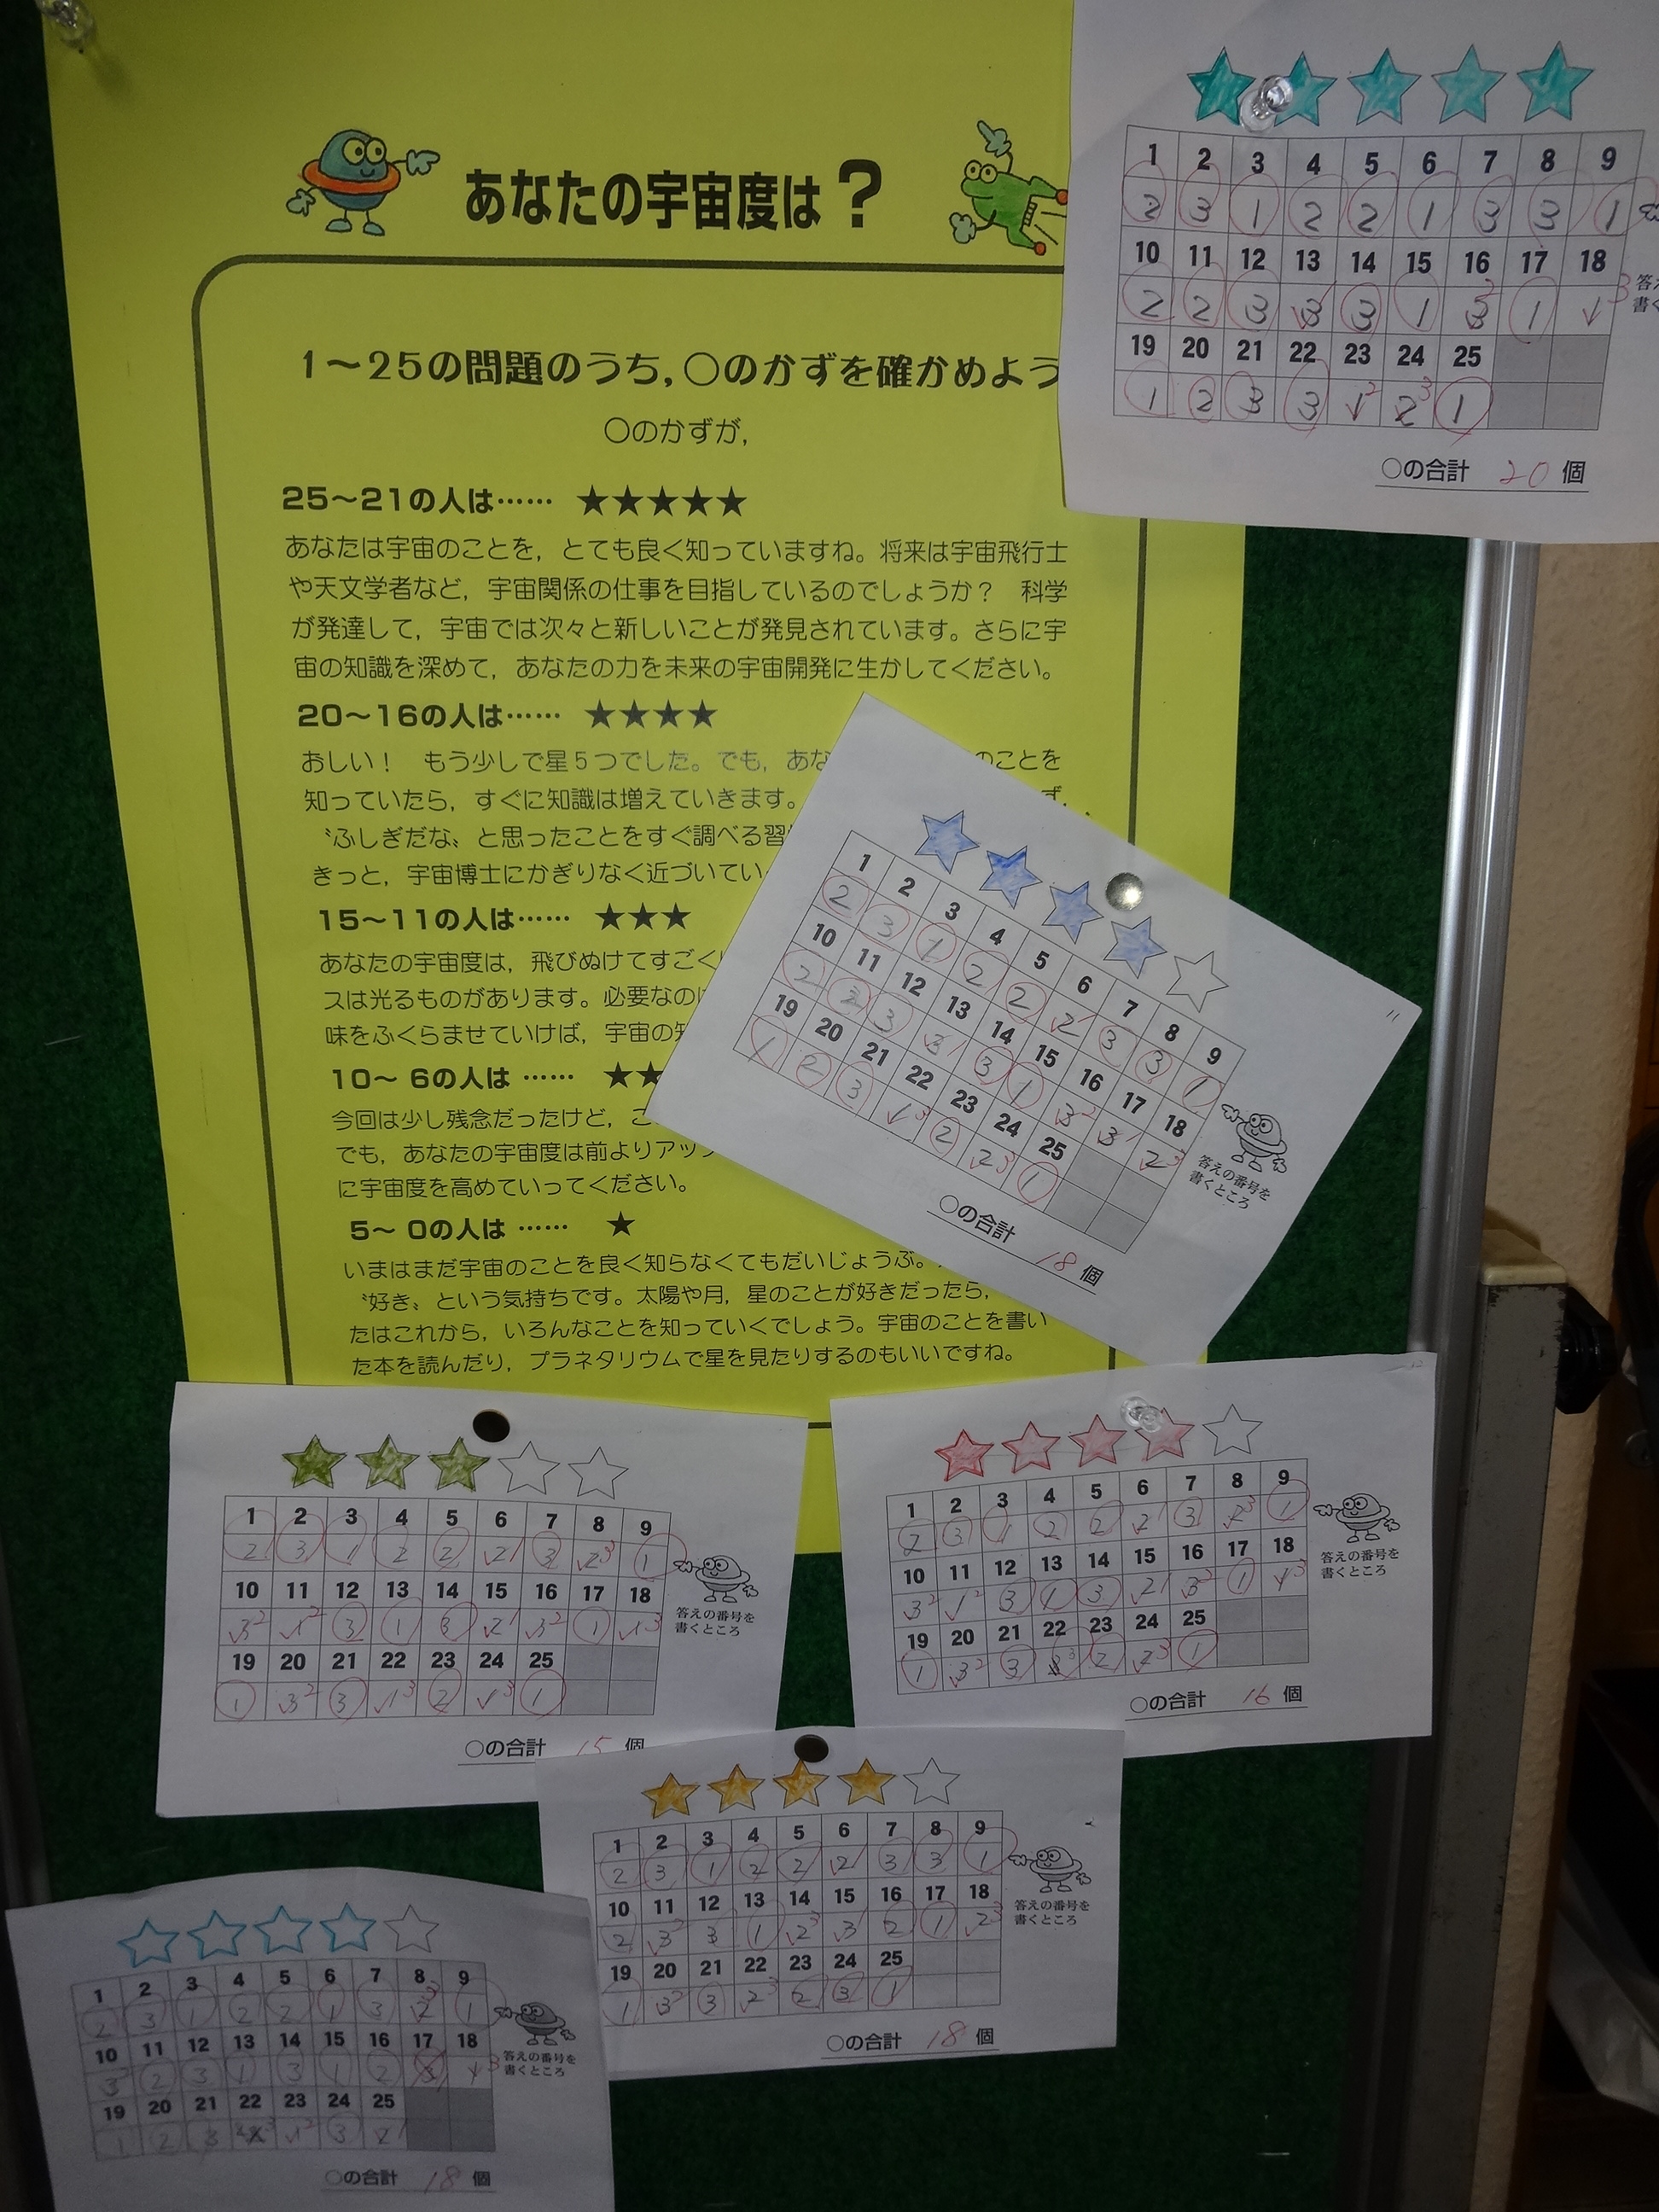 あなたの宇宙度は?
1～25の問題のうち,○のかずを確かめよう
○のかずが,
25～21の人は…… ★★★★★
あなたは宇宙のことを,とても良く知っていますね。将来は宇宙飛行士
や天文学者など,宇宙関係の仕事を目指しているのでしょうか? 科学
が発達して,宇宙では次々と新しいことが発見されています。さらに宇
宙の知識を深めて,あなたの力を未来の宇宙開発に生かしてください。
20～16の人は…… ★★★★
おしい! もう少しで星5つでした。でも,あな のことを
知っていたら,すぐに知識は増えていきます。 ず,
〝ふしぎだな〟と思ったことをすぐ調べる習
きっと,宇宙博士にかぎりなく近づいてい
15～11の人は…… ★★★
あなたの宇宙度は,飛びぬけてすごく
スは光るものがあります。必要なの
味をふくらませていけば,宇宙の知
10～ 6の人は …… ★★
今回は少し残念だったけど,こ
でも,あなたの宇宙度は前よりアップ
に宇宙度を高めていってください。
5～ 0の人は …… ★
いまはまだ宇宙のことを良く知らなくてもだいじょうぶ。
〝好き〟という気持ちです。太陽や月,星のことが好きだったら,
たはこれから,いろんなことを知っていくでしょう。宇宙のことを書い
た本を読んだり,プラネタリウムで星を見たりするのもいいですね。
1 2 3 4 5 6 7 8 9
2 3 1 2 2 1 3 3 1
10 11 12 13 14 15 16 17 18
2 2 3 3 3 1 3 1 1
答え
書く
19 20 21 22 23 24 25
1 2 3 3 1 2 1
○の合計 20 個
1 2 3 4 5 6 7 8 9
2 3 1 2 2 2 3 3 1
10 11 12 13 14 15 16 17 18
2 2 3 3 3 1 3 3 2
19 20 21 22 23 24 25
1 2 3 1 2 2 1
答えの番号を
書くところ
○の合計 18 個
11
1 2 3 4 5 6 7 8 9
2 3 1 2 2 2 3 2 1
10 11 12 13 14 15 16 17 18
3 1 3 1 3 2 3 1 1
答えの番号を
書くところ
19 20 21 22 23 24 25
1 3 3 1 2 1 1
○の合計 15 個
1 2 3 4 5 6 7 8 9
2 3 1 2 2 2 3 2 1
10 11 12 13 14 15 16 17 18
3 1 3 1 3 2 3 1 1
答えの番号を
書くところ
19 20 21 22 23 24 25
1 3 3 3 2 2 1
○の合計 16 個
1 2 3 4 5 6 7 8 9
2 3 1 2 2 2 3 3 1
10 11 12 13 14 15 16 17 18
2 3 3 1 2 3 2 1 2
答えの番号を
書くところ
19 20 21 22 23 24 25
1 3 3 2 2 3 1
○の合計 18 個
1 2 3 4 5 6 7 8 9
2 3 1 2 2 1 3 2 1
10 11 12 13 14 15 16 17 18
3 2 3 1 3 1 2 3 1
答えの番号を
書くところ
19 20 21 22 23 24 25
1 2 3 1 3 2
○の合計 18 個